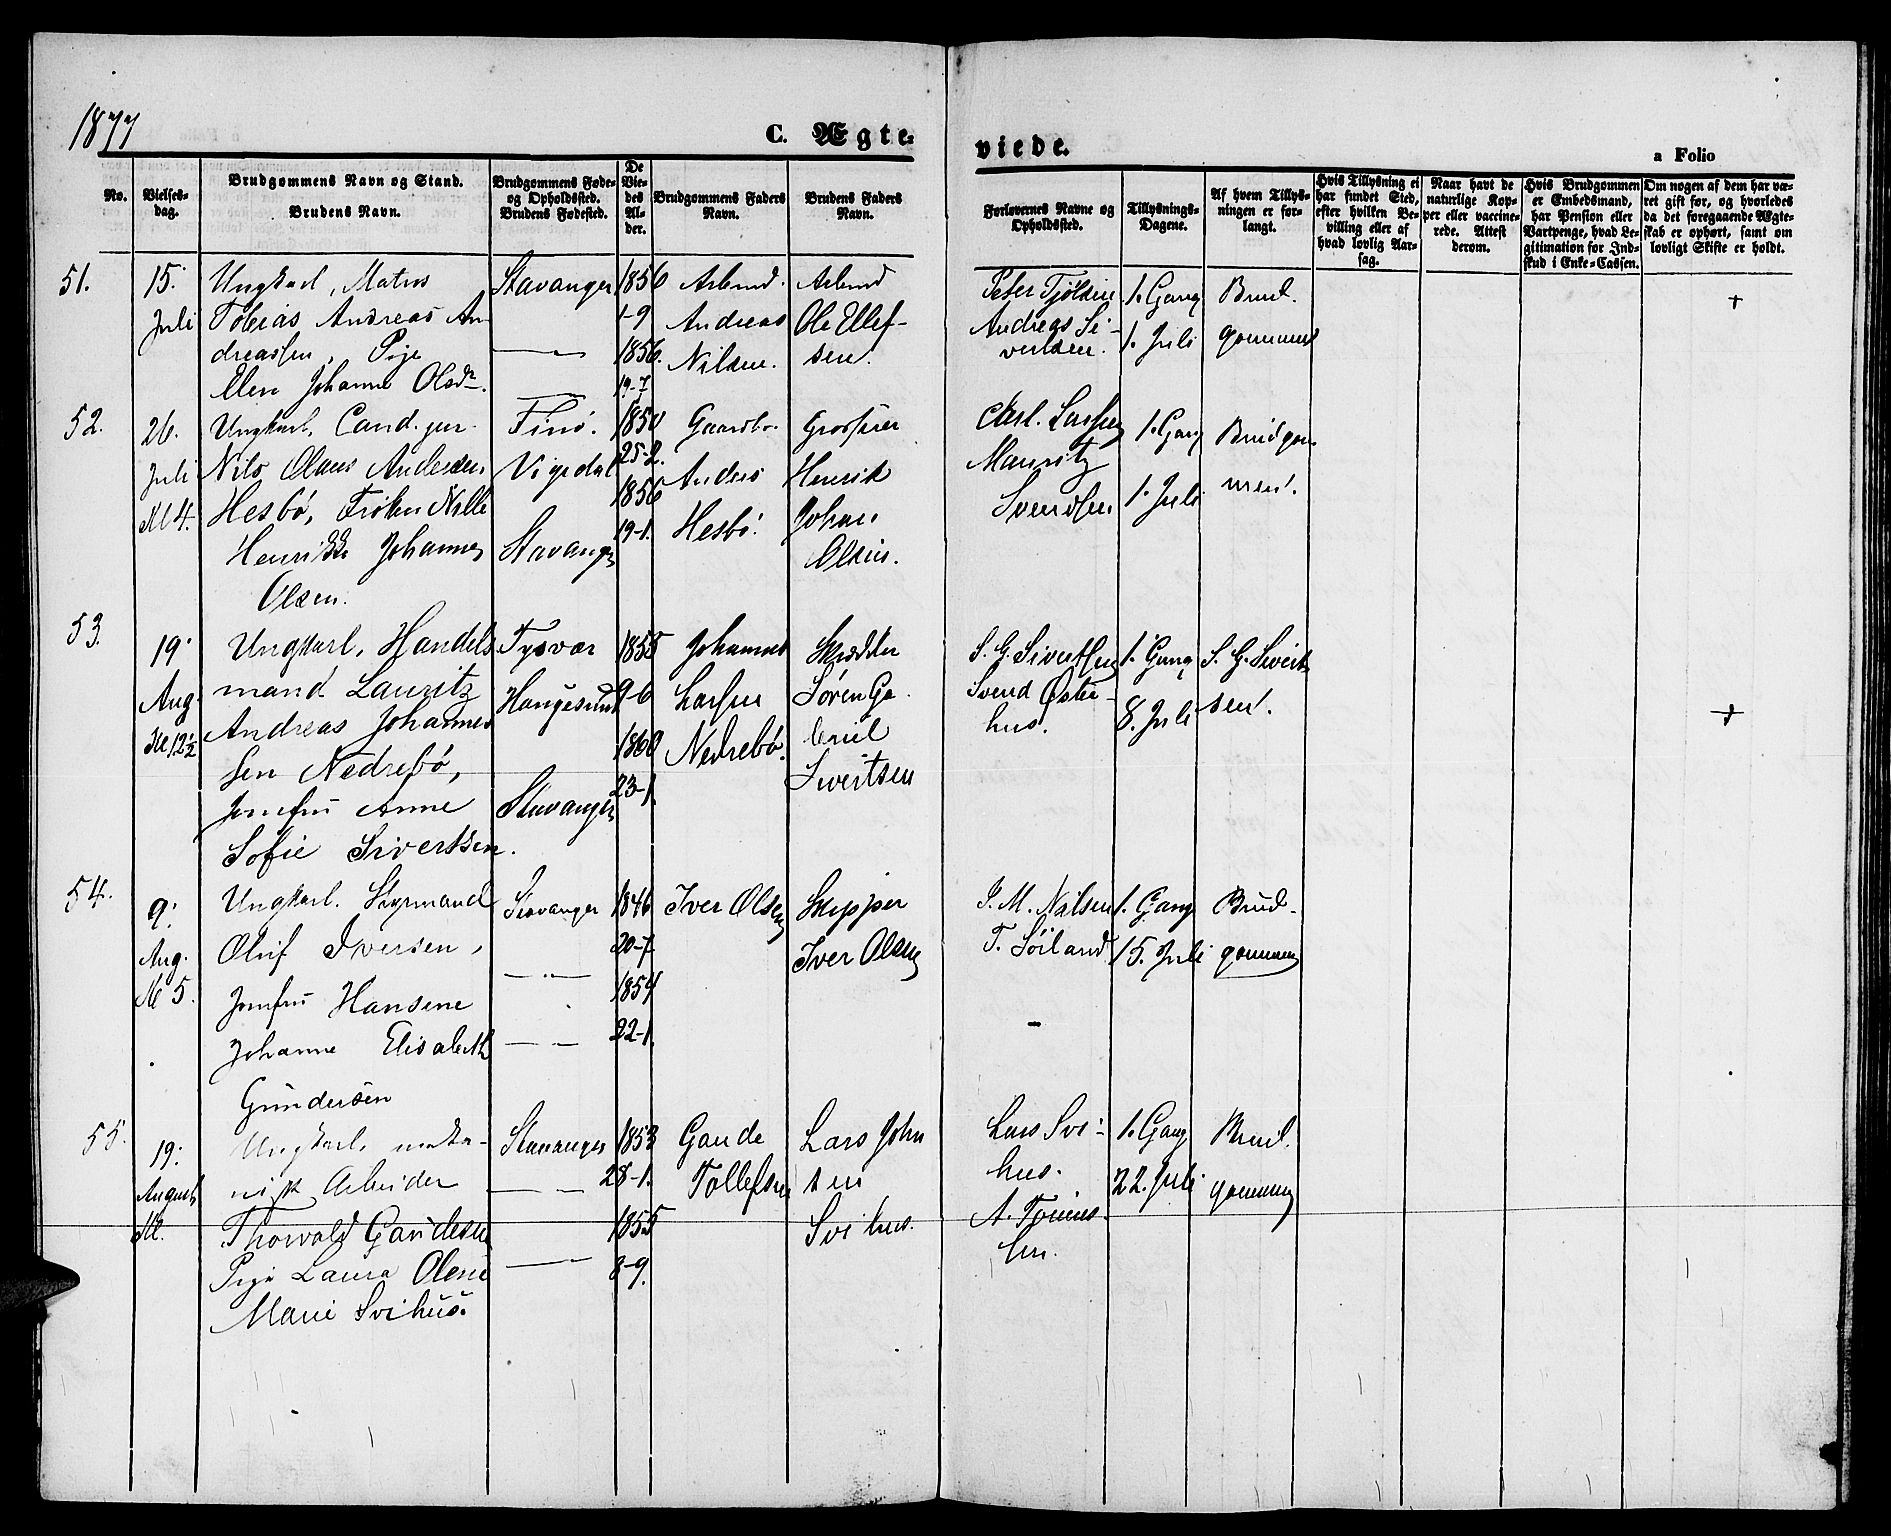 1877
C. Ægte-
viede.
a Folio
No.
Vielses-
dag.
Brudgommens Navn og Stand.
Brudens Navn.
Brudgommens Føde-
og Opholdssted.
Brudens Fødested.
De
Vie-
des
Al-
der.
Brudgommens Faders
Navn.
Brudens Faders
Navn.
Forlovernes Navne og
Opholdssted.
Tillysnings-
Dagene.
Af hvem Tillys-
ningen er for-
langt.
Hvis Tillysning ei
har fundet Sted,
efter hvilken Be-
villing eller af
hvad lovlig Aar-
sag.
Naar havt de
naturlige Kop-
per eller vaccine-
rede. Attest
derom.
Hvis Brudgommen
er Embedsmand,
har Pension eller
Vartpenge, hvad Le-
gitimation for Ind-
skud i Enke-Cassen.
Om nogen af dem har væ-
ret gift før, og hvorledes
da det foregaaende Ægte-
skab er ophørt, samt om
lovligt Skifte er holdt.
51.
15.
Juli
Ungkarl, Matros
Tobias Andreas An-
dreassen, Pige
Elen Johanne Olsdr.
Stavanger
1856
1-9
1856.
19-7
Arbmd.
Andreas
Nilsen.
Arbmd
Ole Ellef-
sen.
Peter Tjölsen
Andreas Si-
vertsen.
1. Gang
1. Juli
Brud-
gommen
+
52.
26.
Juli
Kl 4.
Ungkarl, Cand. jur.
Nils Olaus Andersen
Hesbö, Fröken Nille
Henrikke Johannes
Olsen.
Finö.
Vigedal
Stavanger
1850
25-2.
1856
19-1.
Gaardbr.
Andres
Hesbö.
Grosserer
Henrik
Johan
Olsen.
Carl. Larsen
Mauritz
Svendsen
1. Gang
1. Juli
Brudgom-
men.
53.
19.
Aug.
Kl 12½
Ungkarl, Handels
mand Lauritz
Andreas Johannes
sen Nedrebö,
Jomfru Anne
Sofie Sivertsen.
Tysvær
Haugesund
Stavanger
1855
9-6
1860
23-1.
Johannes
Larsen
Nedrebö.
Skrædder
Sören Ga-
briel
Sivertsen
S. G. Sivertsen
Svend Öster-
hus.
1. Gang
8. Juli
S. G. Sivert
sen.
+
54.
9.
Aug.
Kl 5.
Ungkarl. Styrmand
Oluf Iversen,
Jomfru Hansene
Johanne Elisabeth
Gundersen
Stavanger
1846
20-7
1854
22-1.
Iver Olsen
Skipper
Iver Olsen
J. M. Nilsen
T. Söiland
1. Gang
15. Juli
Brud-
gommen
55.
19.
August
Kl.
Ungkarl, meka-
nisk Arbeider
Thorvald Gaudesen
Pige Laura Olene
Marie Svihus.
Stavanger
1853
28-1.
1855
8-9.
Gaude
Tollefsen
Lars John
sen
Svihus.
Lars Svi-
hus.
1. Gang
22. Juli
Brud.
gommen